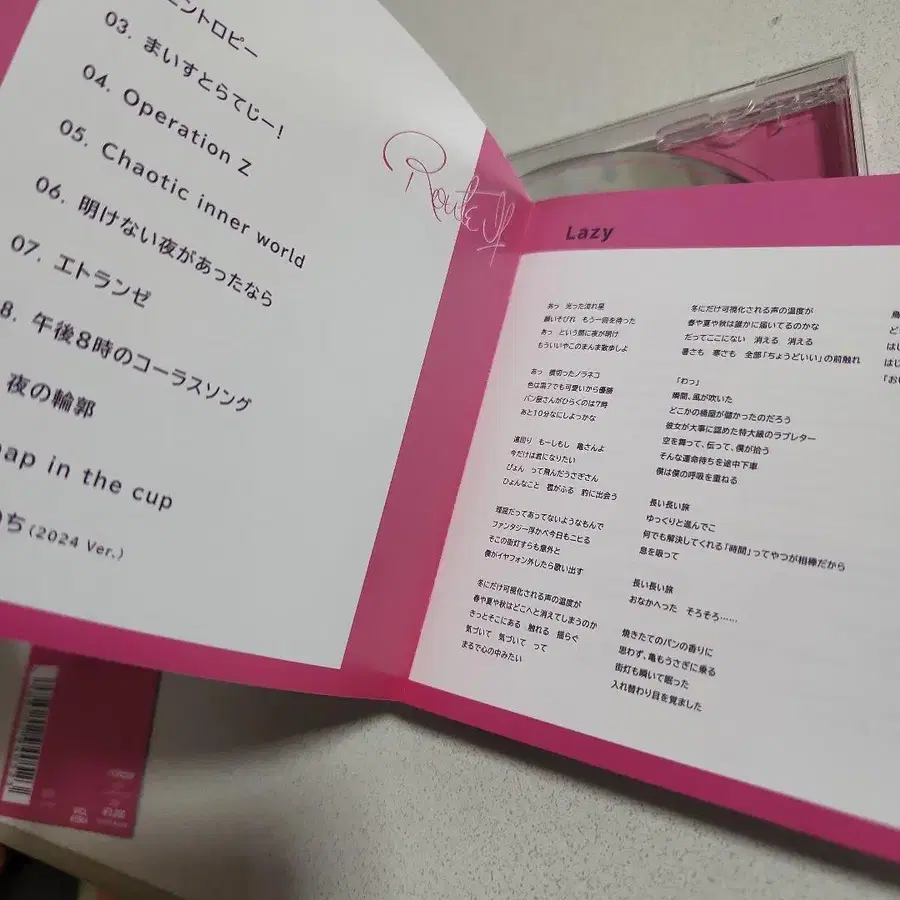 ントロピー
03. まいすとらてじー!
04. Operation Z
05. Chaotic inner world
06. 明けない夜があったなら
07. エトランゼ
8. 午後8時のコーラスソング
夜の輪郭
nap in the cup
ち (2024 Ver.)
Lazy
あっ 光った流れ星
願いそびれ もう一回を待った
あっ という間に夜が明け
もういいやこのまんま散歩しよ
あっ 横切ったノラネコ
色は黒?でも可愛いから優勝
パン屋さんがひらくのは7時
あと10分なにしよっかな
遠回り もーしもし 亀さんよ
今だけは君になりたい
ぴょん って飛んだうさぎさん
ひょんなこと 雹がふる 的に出会う
理屈だってあってないようなもんで
ファンタジー浮かべ今日もニヒる
そこの街灯すらも意外と
僕がイヤフォン外したら歌い出す
冬にだけ可視化される声の温度が
春や夏や秋はどこへと消えてしまうのか
きっとそこにある 触れる 揺らぐ
気づいて 気づいて って
まるで心の中みたい
冬にだけ可視化される声の温度が
春や夏や秋は誰かに届いてるのかな
だってここにない 消える 消える
暑さも 寒さも 全部「ちょうどいい」の前触れ
「わっ」
瞬間、風が吹いた
どこかの桶屋が儲かったのだろう
彼女が大事に認めた特大級のラブレター
空を舞って、伝って、僕が拾う
そんな運命待ちを途中下車
僕は僕の呼吸を重ねる
長い長い旅
ゆっくりと進んでこ
何でも解決してくれる「時間」ってやつが相棒だから
息を吸って
長い長い旅
おなかへった そろそろ……
焼きたてのパンの香りに
思わず、亀もうさぎに乗る
街灯も瞬いて眠った
入れ替わり目を覚ました
はじ
はじ
「お